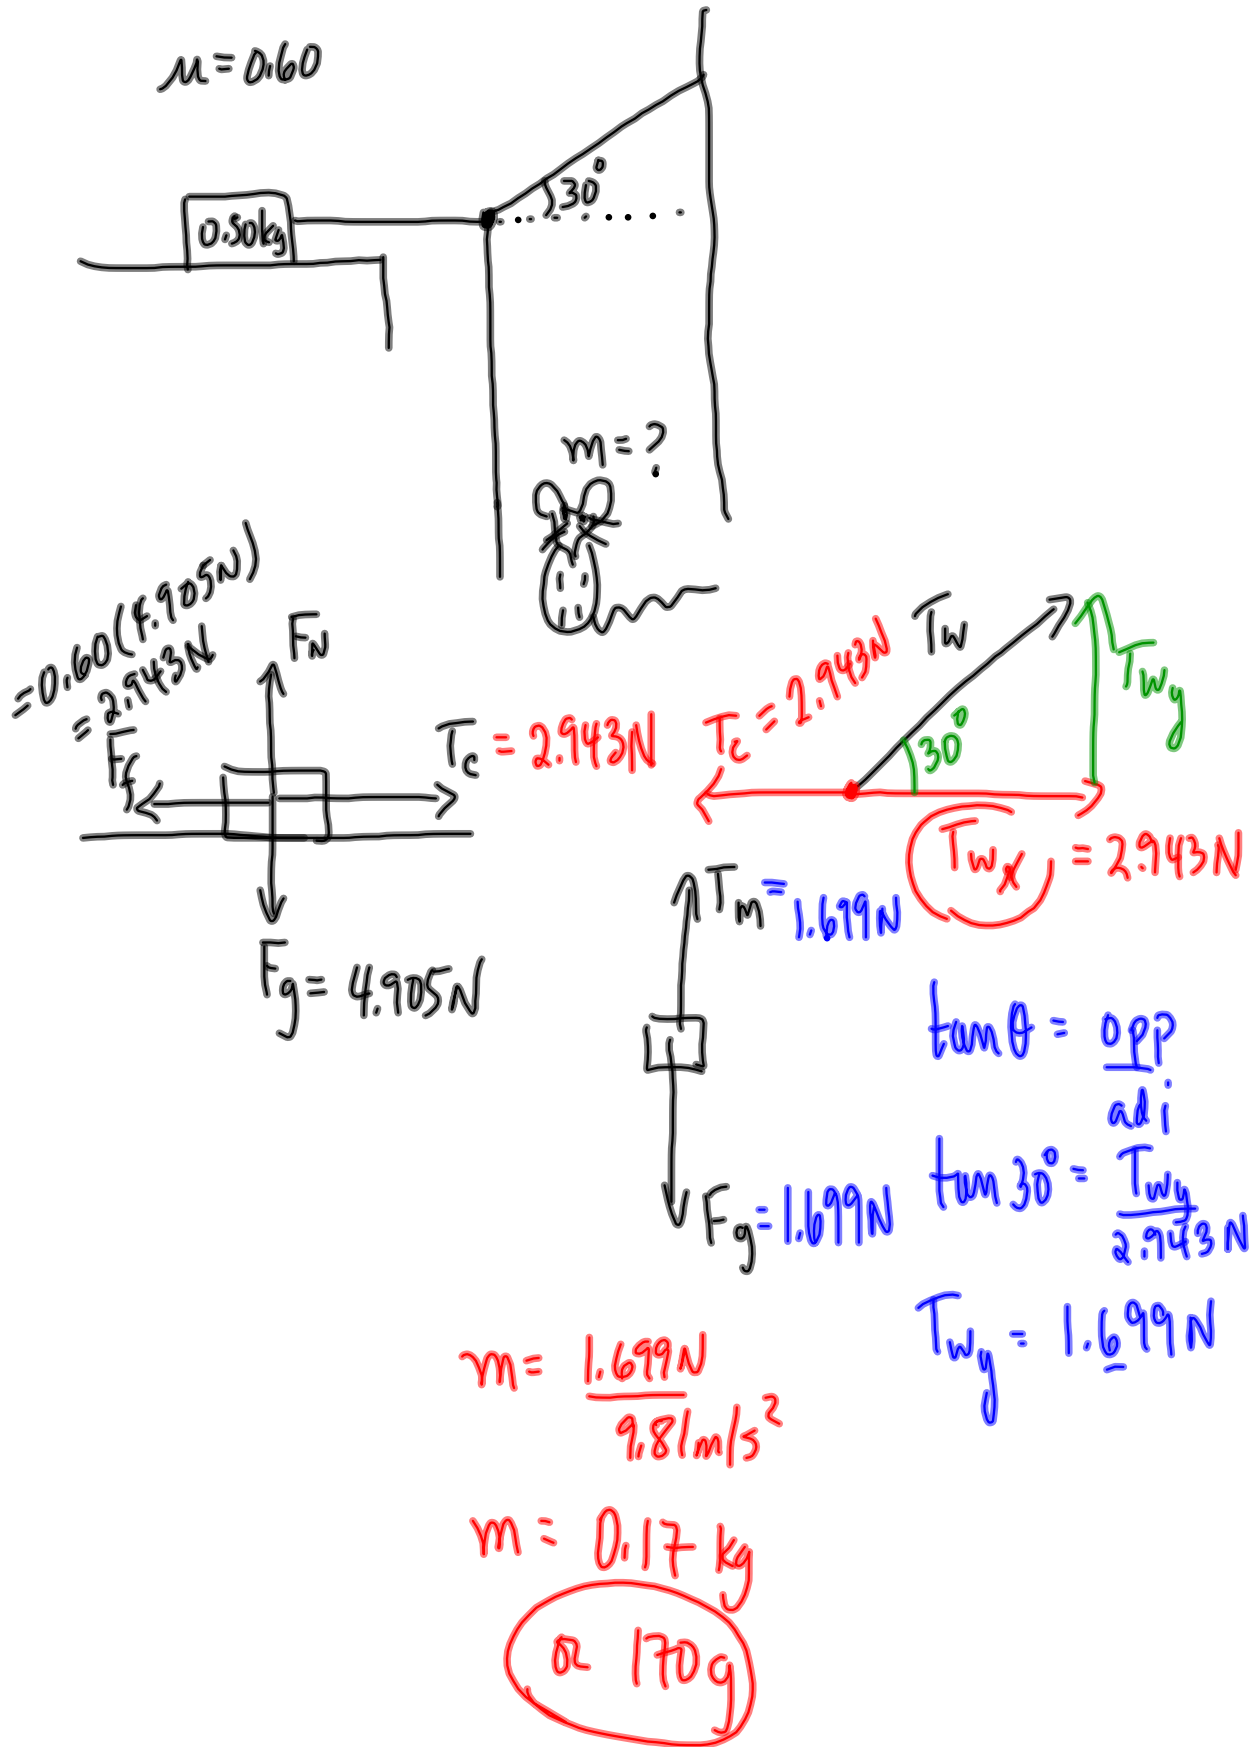 μ = 0.60
30°
0.50kg
m = ?
= 0.60(4.905N)
= 2.943N
Ff
FN
Tc = 2.943N
Fg = 4.905N
Tc = 2.943N
Tw
Twy
30°
Twx = 2.943N
Tm = 1.699N
Fg = 1.699N
tan θ = opp
adi
tan 30° = Twy
2.943N
Twy = 1.699N
m = 1.699N
9.81m/s²
m = 0.17 kg
or 170g